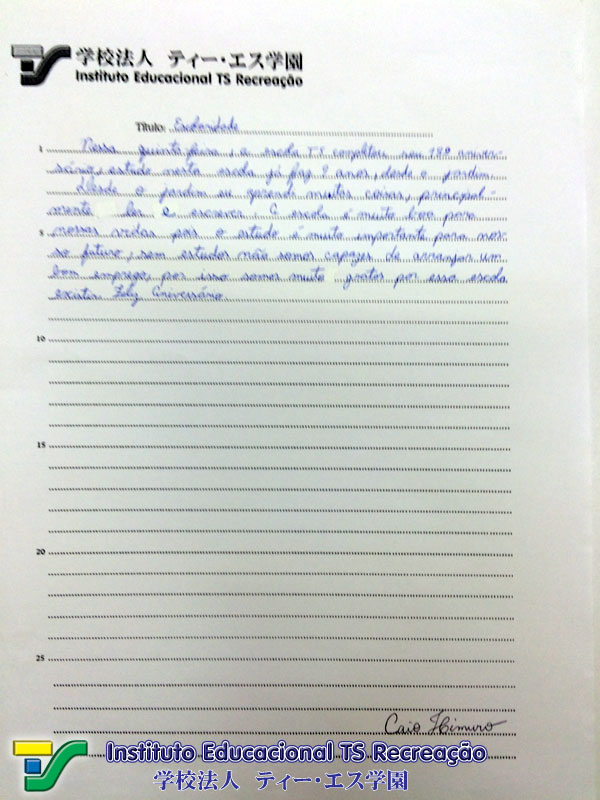 学校法人 ティー・エス学園
Instituto Educacional TS Recreação
Título: Escolaridade
1 Nessa quinta-feira, a escola TS completou seu 18º aniver-
sário, estudo nesta escola já faz 9 anos, desde o jardim.
Desde o jardim eu aprendi muitas coisas, principal-
mente ler e escrever. A escola é muito boa para
5 nossas vidas pois o estudo é muito importante para nos-
so futuro, sem estudos não somos capazes de arranjar um
bom emprego, por isso somos muito gratos por essa escola
existir. Feliz Aniversário.
10
15
20
25
Caio Himuro
Instituto Educacional TS Recreação
学校法人 ティー・エス学園